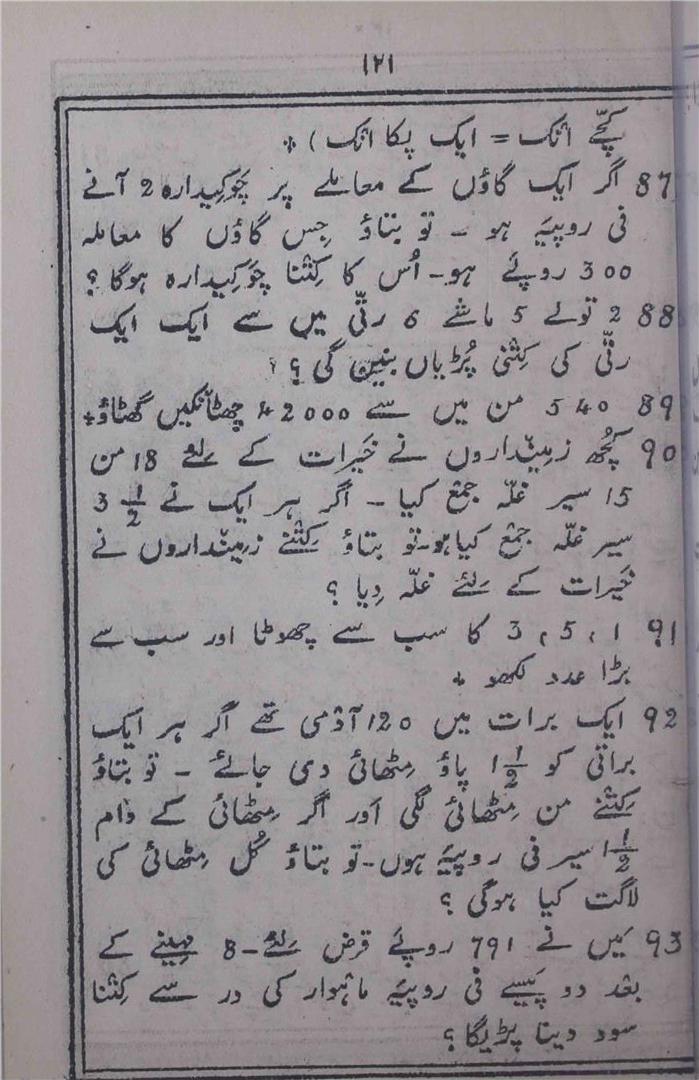 ۱۲۱
کچّے انک = ایک پکا انک) *
87 اگر ایک گاؤں کے معاملے پر چَوکِیدارہ 2 آنے
فی روپیَہ ہو - تو بتاؤ جِس گاؤں کا معاملہ
300 روپَئے ہو - اُس کا کِتْنا چَوکِیدارہ ہوگا ؟
88 2 تولے 5 ماشے 6 رتّی میں سے ایک ایک
رتّی کی کِتْنی پُڑیاں بنیں گی ؟
89 540 من میں سے 42000 چھٹانکیں گھٹاؤ *
90 کُچھ زمِیْنداروں نے خَیرات کے لِئے 18 من
15 سیر غلّہ جمْع کیا - اگر ہر ایک نے 3 1/2
سیر غلّہ جمْع کیا ہو - تو بتاؤ کِتْنے زمِیْنداروں نے
خَیرات کے لِئے غلّہ دِیا ؟
91 1 ، 5 ، 3 کا سب سے چھوٹا اور سب سے
بڑا عدد لکھو *
92 ایک برات میں 120 آدْمی تھے اگر ہر ایک
براتی کو 1 1/2 پاؤ مِٹھائی دی جائے - تو بتاؤ
کِتْنے من مِٹھائی لگی اَور اگر مِٹھائی کے دام
1 1/2 سیر فی روپیَہ ہوں - تو بتاؤ کُل مِٹھائی کی
لاگت کیا ہوگی ؟
93 مَیں نے 791 روپَئے قرض لِئے - 8 مہینے کے
بعْد دو پَیسے فی روپیَہ ماہْوار کی در سے کِتْنا
سود دینا پڑیگا ؟